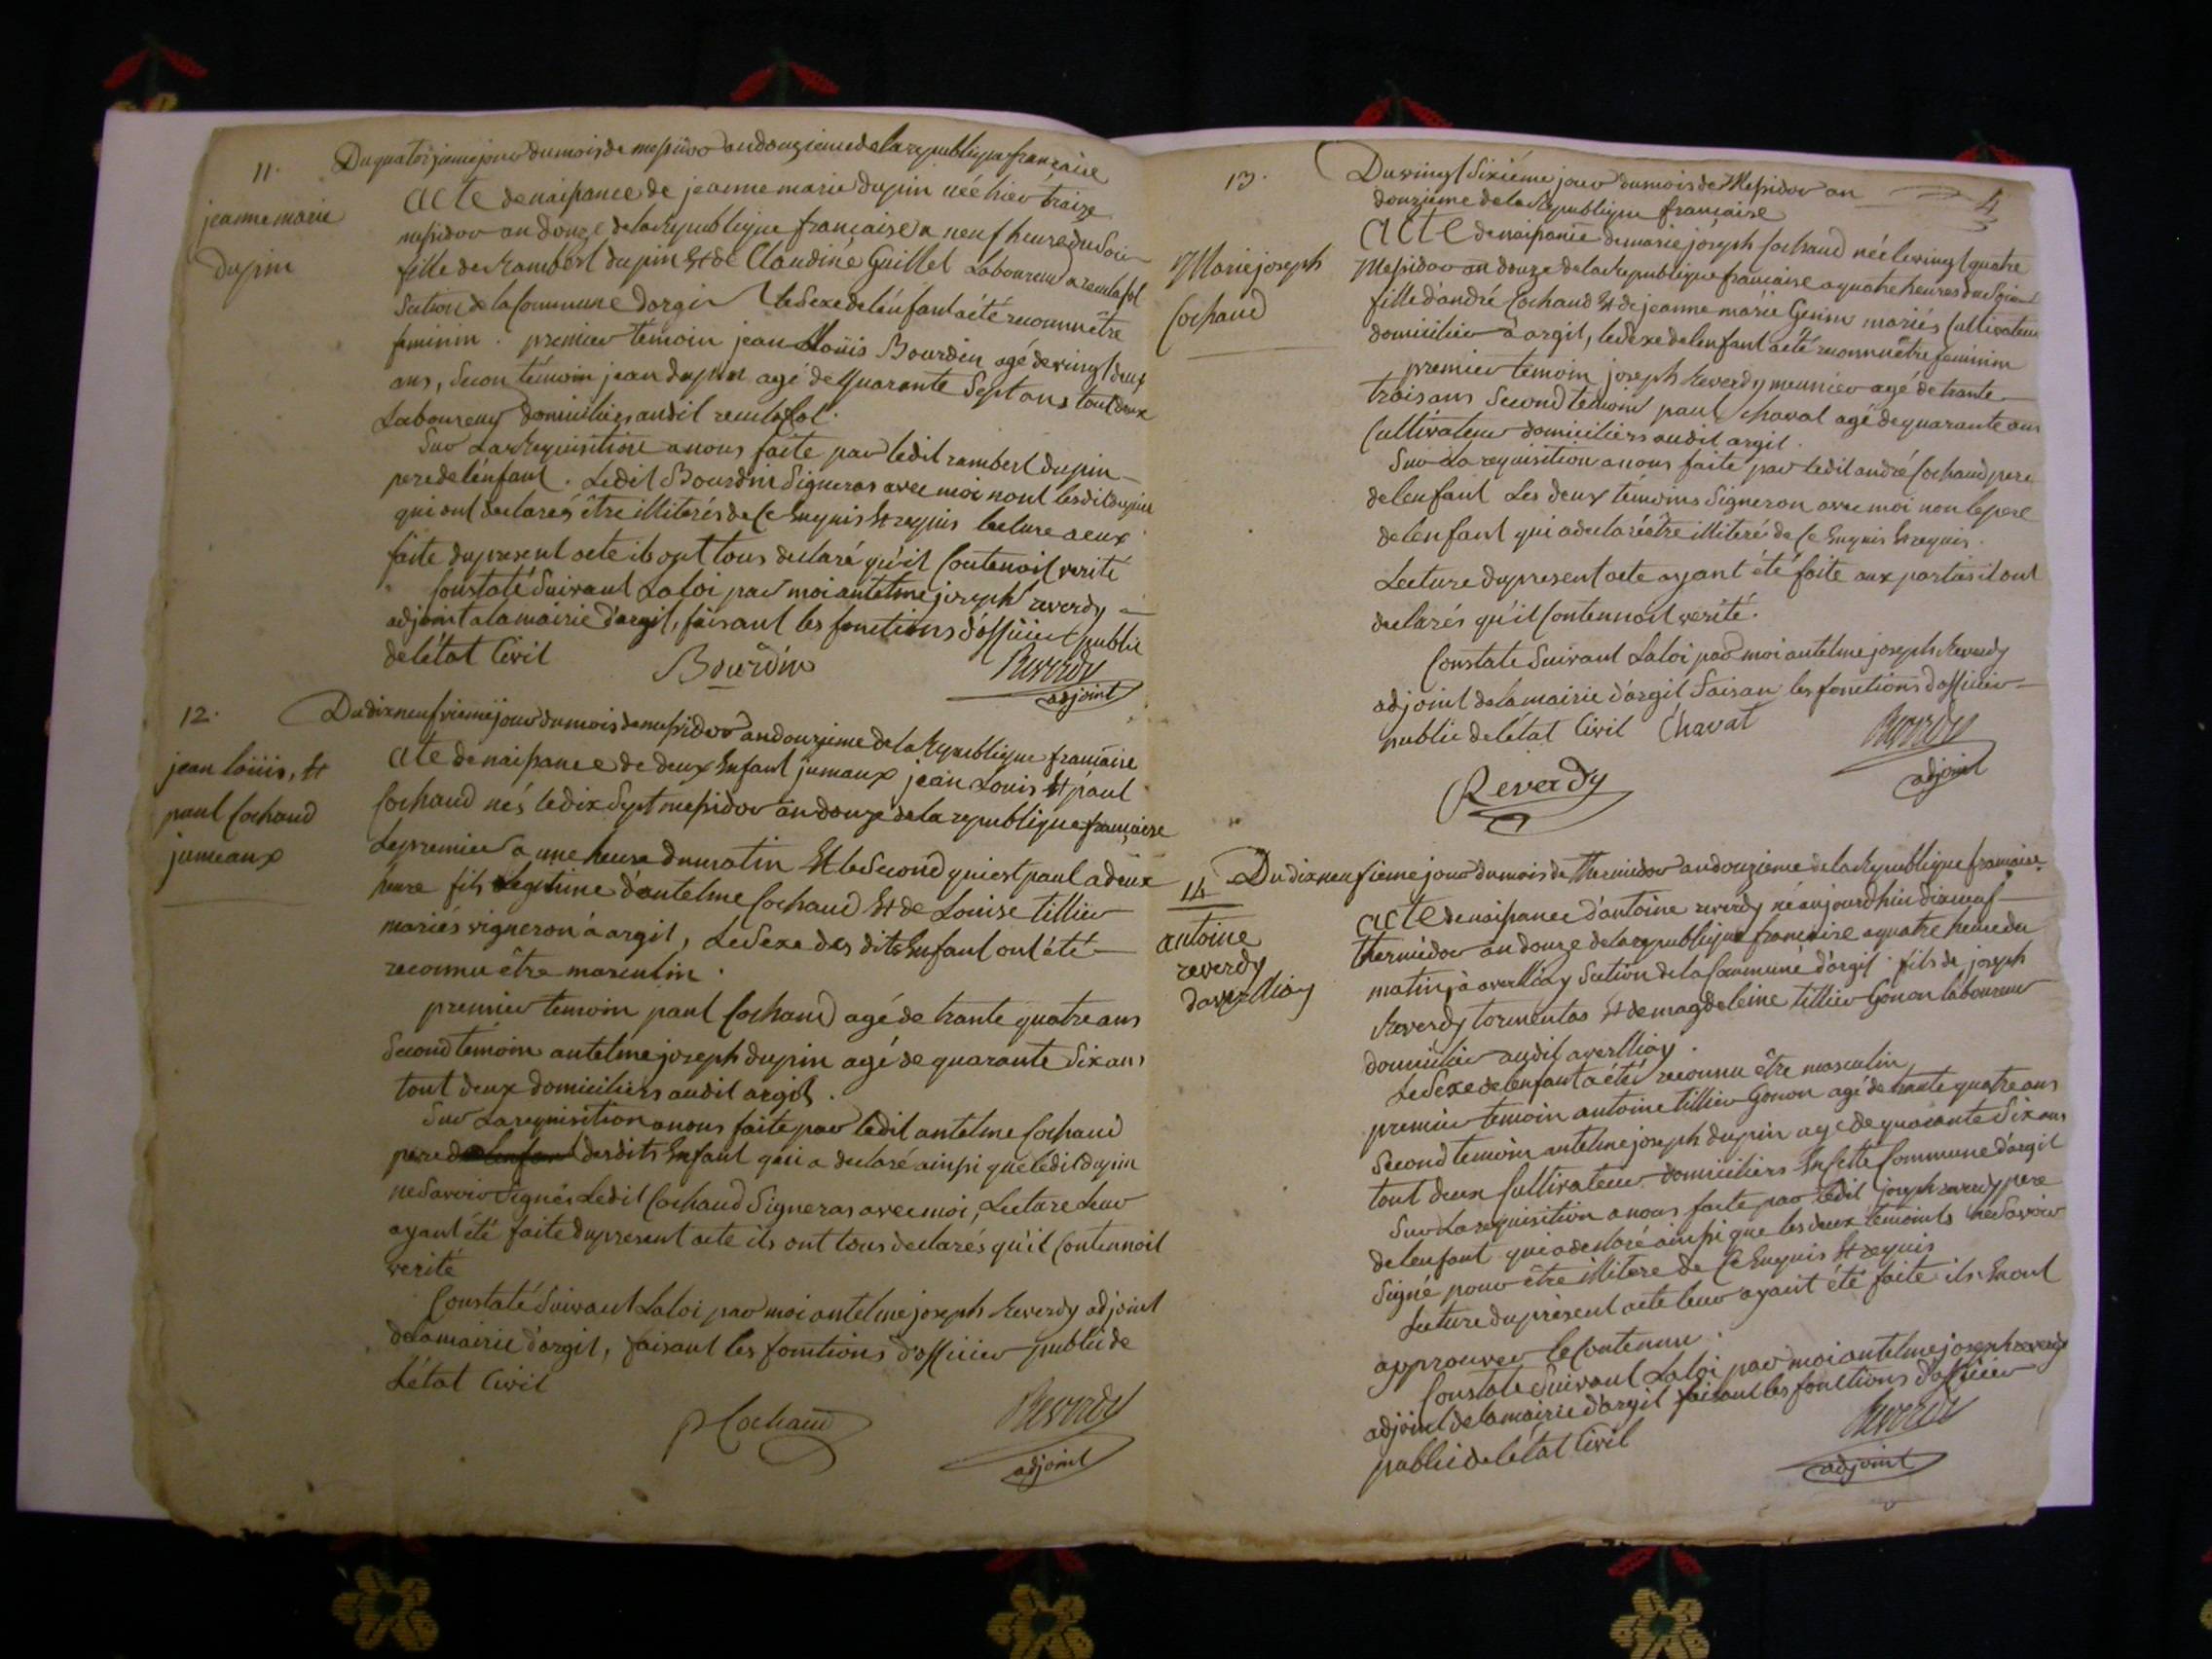 11. Du quatorzieme jour du mois de messidor an douzieme de la republique française
jeanne marie
dupin
acte de naissance de jeanne marie dupin née hier traize
messidor an douze de la Republique française a neuf heure du Soir
fille de Rambert dupin et de Claudine Guillet Laboureur a
Section de la Commune dargis Le Sexe de lénfant a été reconnu être
feminin . premier temoin jean Louis Bourdin agé de vingt deux
ans, Secon témoin jean dupin agé de quarante Sept ans tout deux
Laboureur domiciliers audit
Sur La Requisition a nous faite par ledit rambert dupin
pere de lénfant . Ledit Bourdin Signeras avec moi nont lesdit dupin
qui ont declarés être illiterés de Ce Enquis et requis lecture a eux
faite du present acte ils ont tous declaré qu'il Contenoit verité
Constaté Suivant La loi par moi antelme joseph reverdy
adjoint a la mairie d'argit, faisant les fonctions d'officier public
de létat Civil
Bourdin Reverdy
adjoint
12. Du dix neufvieme jour du mois de messidor an douzieme de la Republique française
jean loüis, et
paul Cochaud
jumeaux
acte de naissance de deux Enfant jumeaux jean Louis et paul
Cochaud nés le dix Sept messidor an douze de la republique française
Le premier a une heure du matin et le Second qui est paul a deux
heure fils Legitime d'antelme Cochaud et de Louise tillier
mariés vigneron à argit, Le Sexe des dits Enfant ont été
reconnu être masculin .
premier temoin paul Cochaud agé de trante quatre ans
Second témoin antelme joseph dupin agé de quarante Six ans
tout deux domiciliers audit argit .
Sur La requisition a nous faite par ledit antelme Cochaud
pere de lenfant desdits Enfant qui a declaré ainssi que ledit dupin
ne Savoir Signés Ledit Cochaud Signeras avec moi, Lecture Leur
ayant été faite du present acte ils ont tous declarés qu'il Contennoit
verité
Constaté Suivant La loi par moi antelme joseph Reverdy adjoint
de la mairie d'argit, faisant les fonctions d'officier public de
L'état Civil
p Cochaud Reverdy
adjoint
4
13. Du vingt Sixiéme jour du mois de Messidor an
douzieme de la Republique française
Marie joseph
Cochaud
acte de naissance de marie jóseph Cochaud née le vingt quatre
Messidor an douze de la Republique française a quatre heures du Soir
fille d'andré Cochaud et de jeanne marie Genin mariés Cultivateur
domicilier à argit, le Sexe de lenfant a été reconnu être feminim
premier temoin joseph Reverdy meunier agé de trante
trois ans Second temoin paul Chavat agé de quarante ans
Cultivateur domiciliers audit argit .
Sur La requisition a nous faite par ledit andré Cochaud pere
de lenfant Les deux témoins Signeron avec moi non le pere
de lenfant qui a declaré être illiteré de Ce Enquis et requis .
Lecture du present acte ayant été faite aux partis il ont
declarés qu'il Contennoit verité .
Constaté Suivant La loi par moi antelme joseph Reverdy
adjoint de la mairie d'argit faisan les fonctions d'officier
public de létat Civil Chavat Reverdy
adjoint
Reverdy
14 Du dix neufieme jour du mois de Thermidor an douzieme de la Republique française
antoine
reverdy
acte de naissance d'antoine reverdy né aujourdhui dix neuf
thermidor an douze de la republique française a quatre heure du
matin à averlliay Section de la Commune d'argit . fils de joseph
Reverdy tormentas et de magdeleine tillier Gonon laboureur
domicilier audit averlliay .
Le Sexe de lenfant a été reconnu être masculin
premier temoin antoine tillier Gonon agé de trante quatre ans
Second temoin antelme joseph dupin agé de quarante Six ans
tout deux Cultivateur domiciliers En Cette Commune d'argit
Sur La requisition a nous faite par ledit joseph reverdy pere
de lenfant qui a declaré ainssi que les deux temoints ne Savoir
Signé pour être illitere de Ce Enquis et requis
Lecture du present acte leur ayant été faite ils En ont
approuver le Contennu .
Constaté Suivant La loi par moi antelme joseph reverdy
adjoint de la mairie d'argit faisant les fonctions d'officier
public de létat Civil Reverdy
adjoint